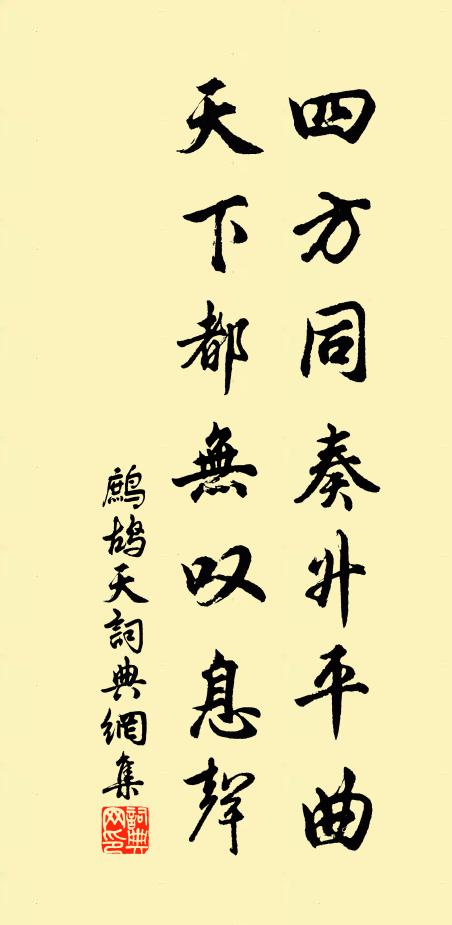 四方同奏升平曲
天下都無叹息聲
鷓鴣天詞典網集
詞典网印